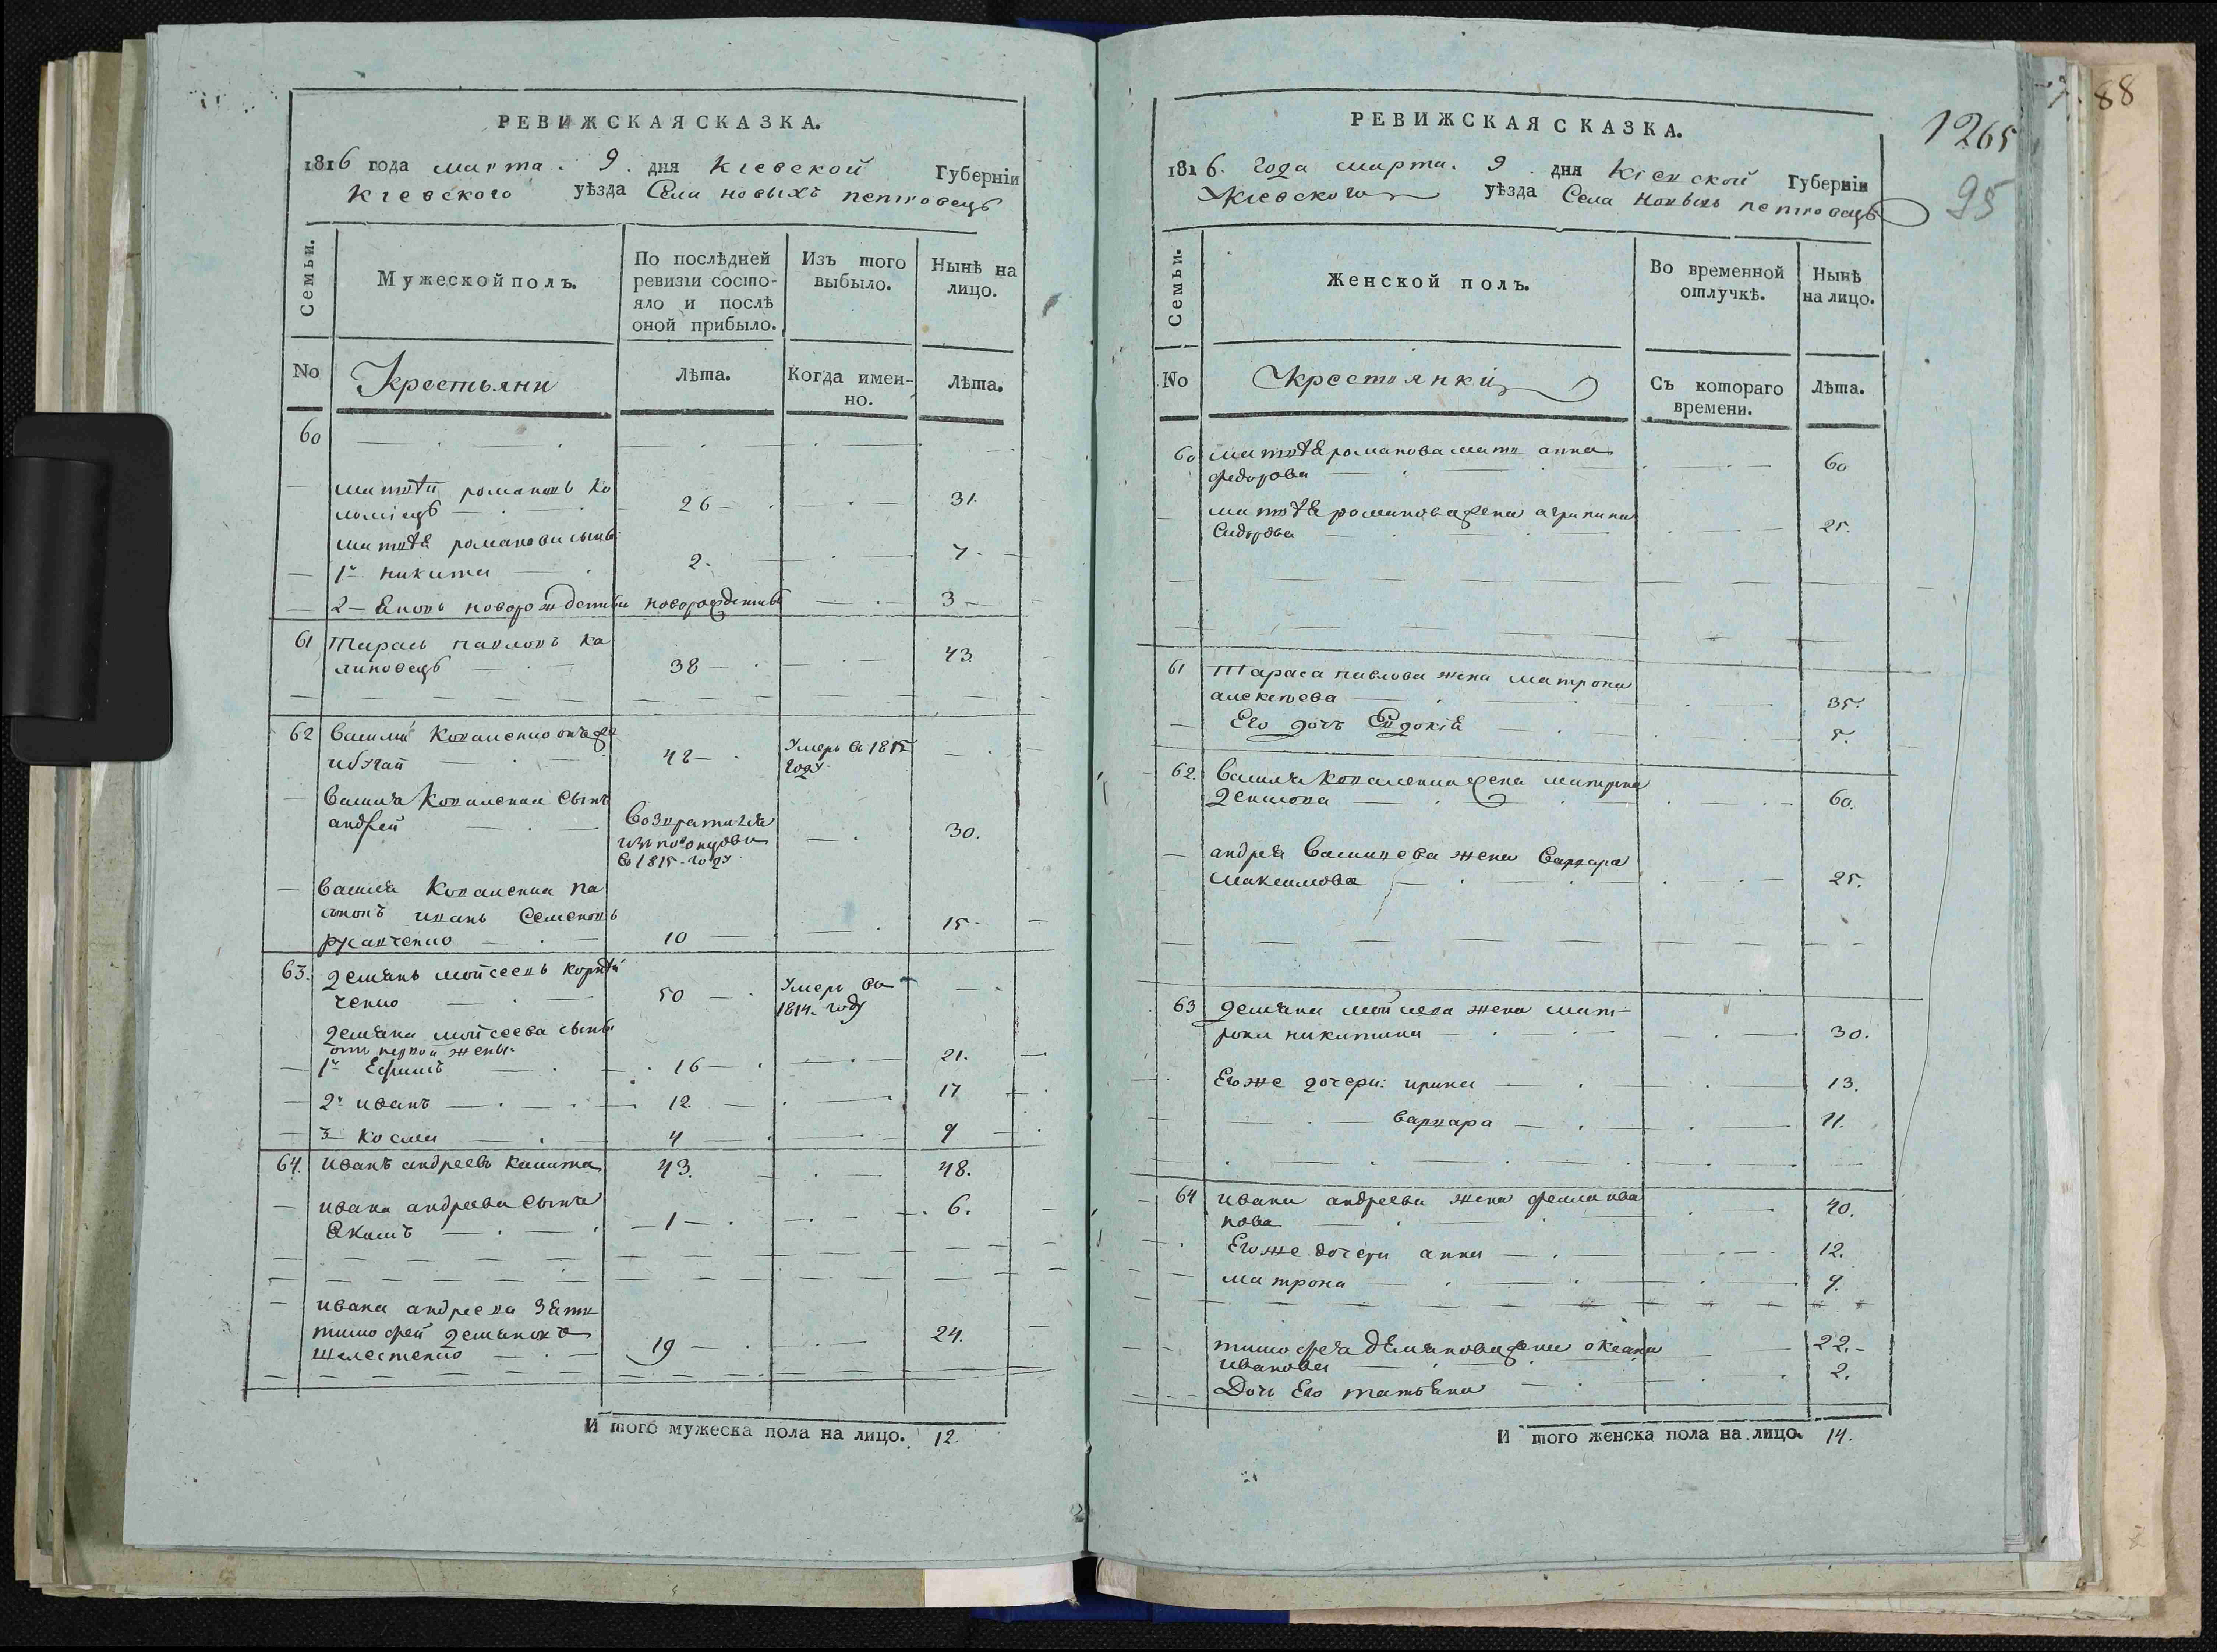 РЕВИЖСКАЯ СКАЗКА.
1816 года марта. 9. дня Кіевской Губерніи
Кіевского уѣзда Села новыхъ петровецъ
Семьи.
Мужеской полъ.
По послѣдней
ревизіи состо-
яло и послѣ
оной прибыло.
Изъ того
выбыло.
Нынѣ на
лицо.
No
Крестьяни
Лѣта.
Когда имен-
но.
Лѣта.
60
матвѣй романовъ ко
ломіецъ 26 31.
матвѣя романова сынъ
1й никита 2. 7.
2 - Яковъ новорожденный новорожденый 3
61 Тарасъ павловъ ка
линовецъ 38 43.
62 Василій Коваленко онъже
42 Умеръ в 1815
году
Василя Коваленка сынъ
андрей Возвратился
в 1815 году 30.
Василя Коваленка па
сынокъ иванъ Семеновъ
русанченко 10 15
63. демянъ мойсеевъ
ченко 50 Умеръ во
1814. году
демяна мойсеева сыны
отъ первой жены
1й Ефимъ 16 21.
2й иванъ 12. 17
3 косма 4 9
64. иванъ андреевъ калита 43. 48.
ивана андреева сынъ
Якимъ 1 6.
ивана андреева зять
тимофей демяновъ
шелестенко 19 24.
И того мужеска пола на лицо. 12.
88
1265
95
РЕВИЖСКАЯ СКАЗКА.
1816. года марта. 9. дня Кіевской Губерніи
Кіевского уѣзда Села Новыхъ петровецъ
Семьи.
Женской полъ.
Во временной
отлучкѣ.
Нынѣ
на лицо.
No
Крестьянки
Съ котораго
времени.
Лѣта.
60 матвѣя романова мать анна
федорова 60
матвѣя романова жена агрипина
Сидорова 25.
61 Тараса павлова жена матрона
алексѣева 35.
Его дочь Евдокія 5.
62. Василя Коваленка жена матрона
60.
андрея Василева жена Варвара
Максимова 25.
63 демяна мойсеева жена мат-
рона никитина 30.
Его же дочери: ирина 13.
варвара 11.
64 ивана андреева жена фекла ива
нова 40.
Его же дочери анна 12.
матрона 9.
тимофея демянова жена оксана
иванова 22.
Дочь Его татьяна 2.
И того женска пола на лицо. 14.